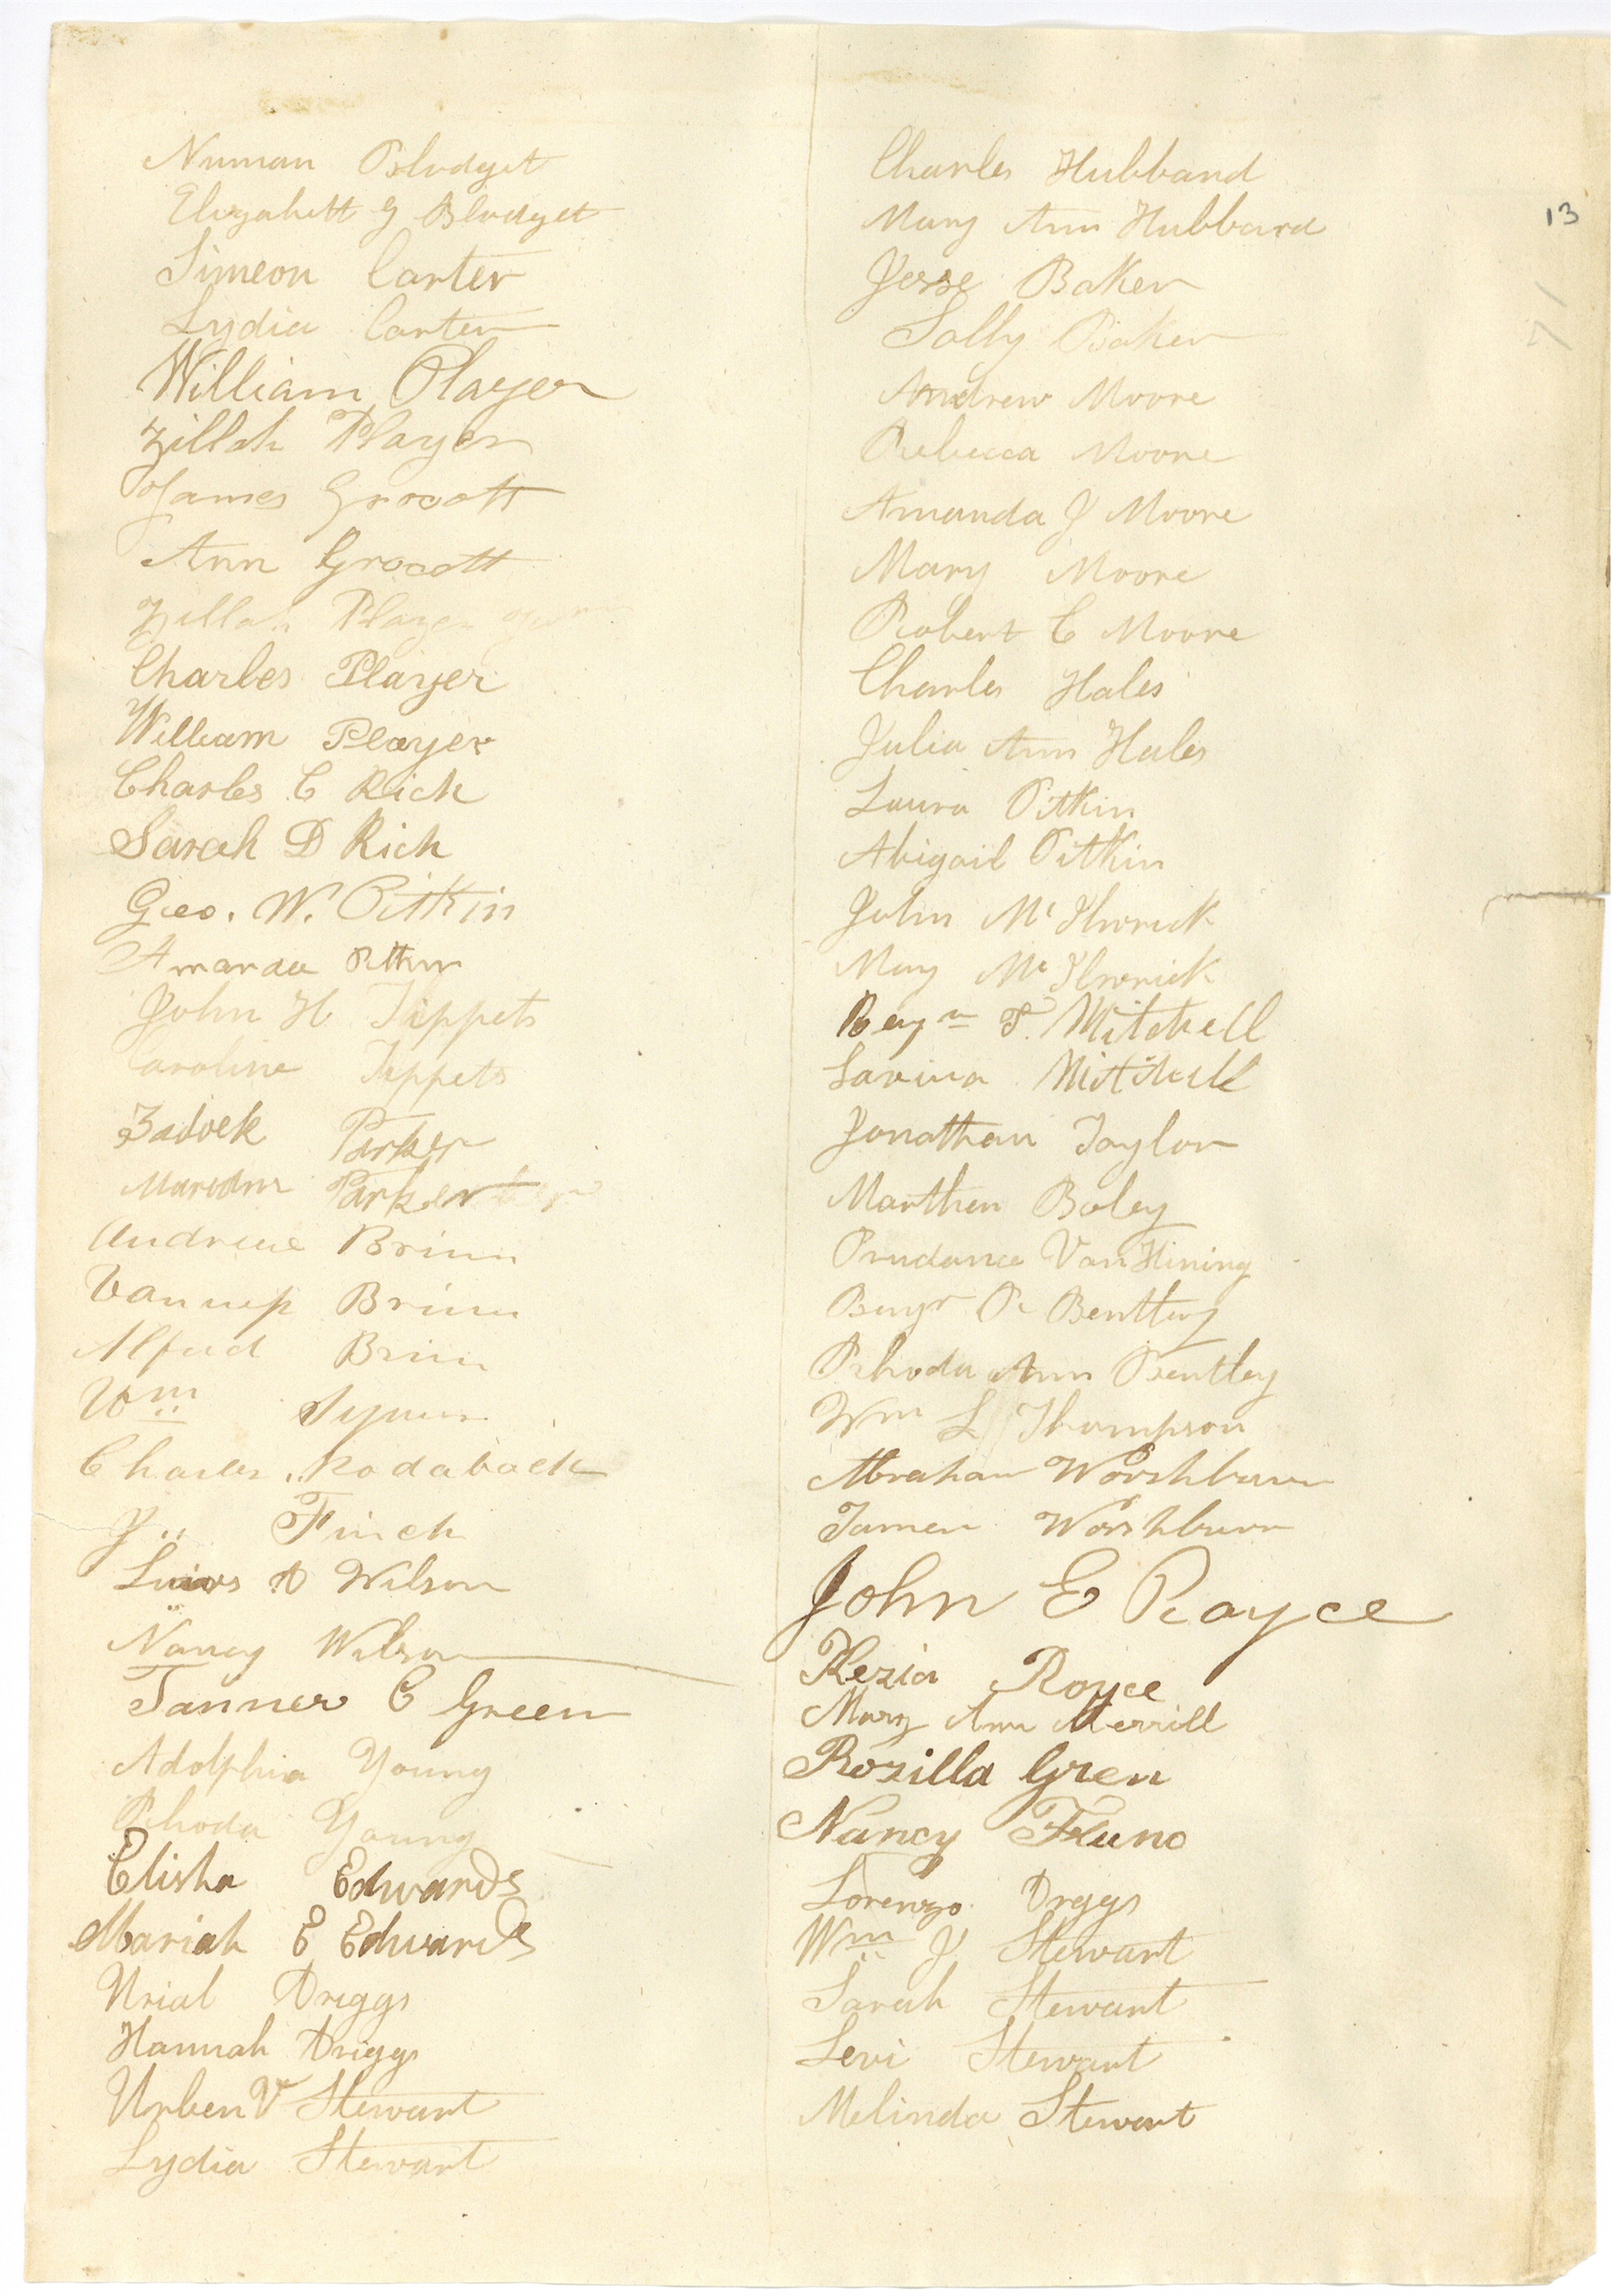 Numan Blodget
Elizabett G Blodget
Simeon Carter
Lydia Carter
William Player
Zillah Player
James Grocott
Ann Grocott
Zillah Player
Charles Player
William Player
Charles C Rich
Sarah D Rich
Geo. W. Pitkin
Amanda Pitkin
John H Tippets
Caroline Tippets
Zadock Parker
Parker
Andrew Brim
Brim
Alfred Brim
Wm
Charles Rodaback
J Finch
Lewis D Wilson
Nancy Wilson
Tanner C Green
Adolphia Young
Rhoda Young
Elisha Edwards
Mariah E Edwards
Urial Driggs
Hannah Driggs
Urben V Stewart
Lydia Stewart
Charles Hubbard
Mary Ann Hubbard
Jesse Baker
Sally Baker
Andrew Moore
Rebecca Moore
Amanda J Moore
Mary Moore
Robert C Moore
Charles Hales
Julia Ann Hales
Laura Pitkin
Abigail Pitkin
John
Mary
Benjn T. Mitchell
Lavina Mitchell
Jonathan Taylor
Marthen Boley
Prudance VanHining
Benjn R Bentley
Rhoda Ann Bentley
Wm L Thompson
Abraham Worshburn
Tamer Worshburn
John E Royce
Kezia Royce
Mary Ann Merrill
Rozilla Gren
Nancy
Lorenzo Driggs
Wm J Stewart
Sarah Stewart
Levi Stewart
Melinda Stewart
13
71